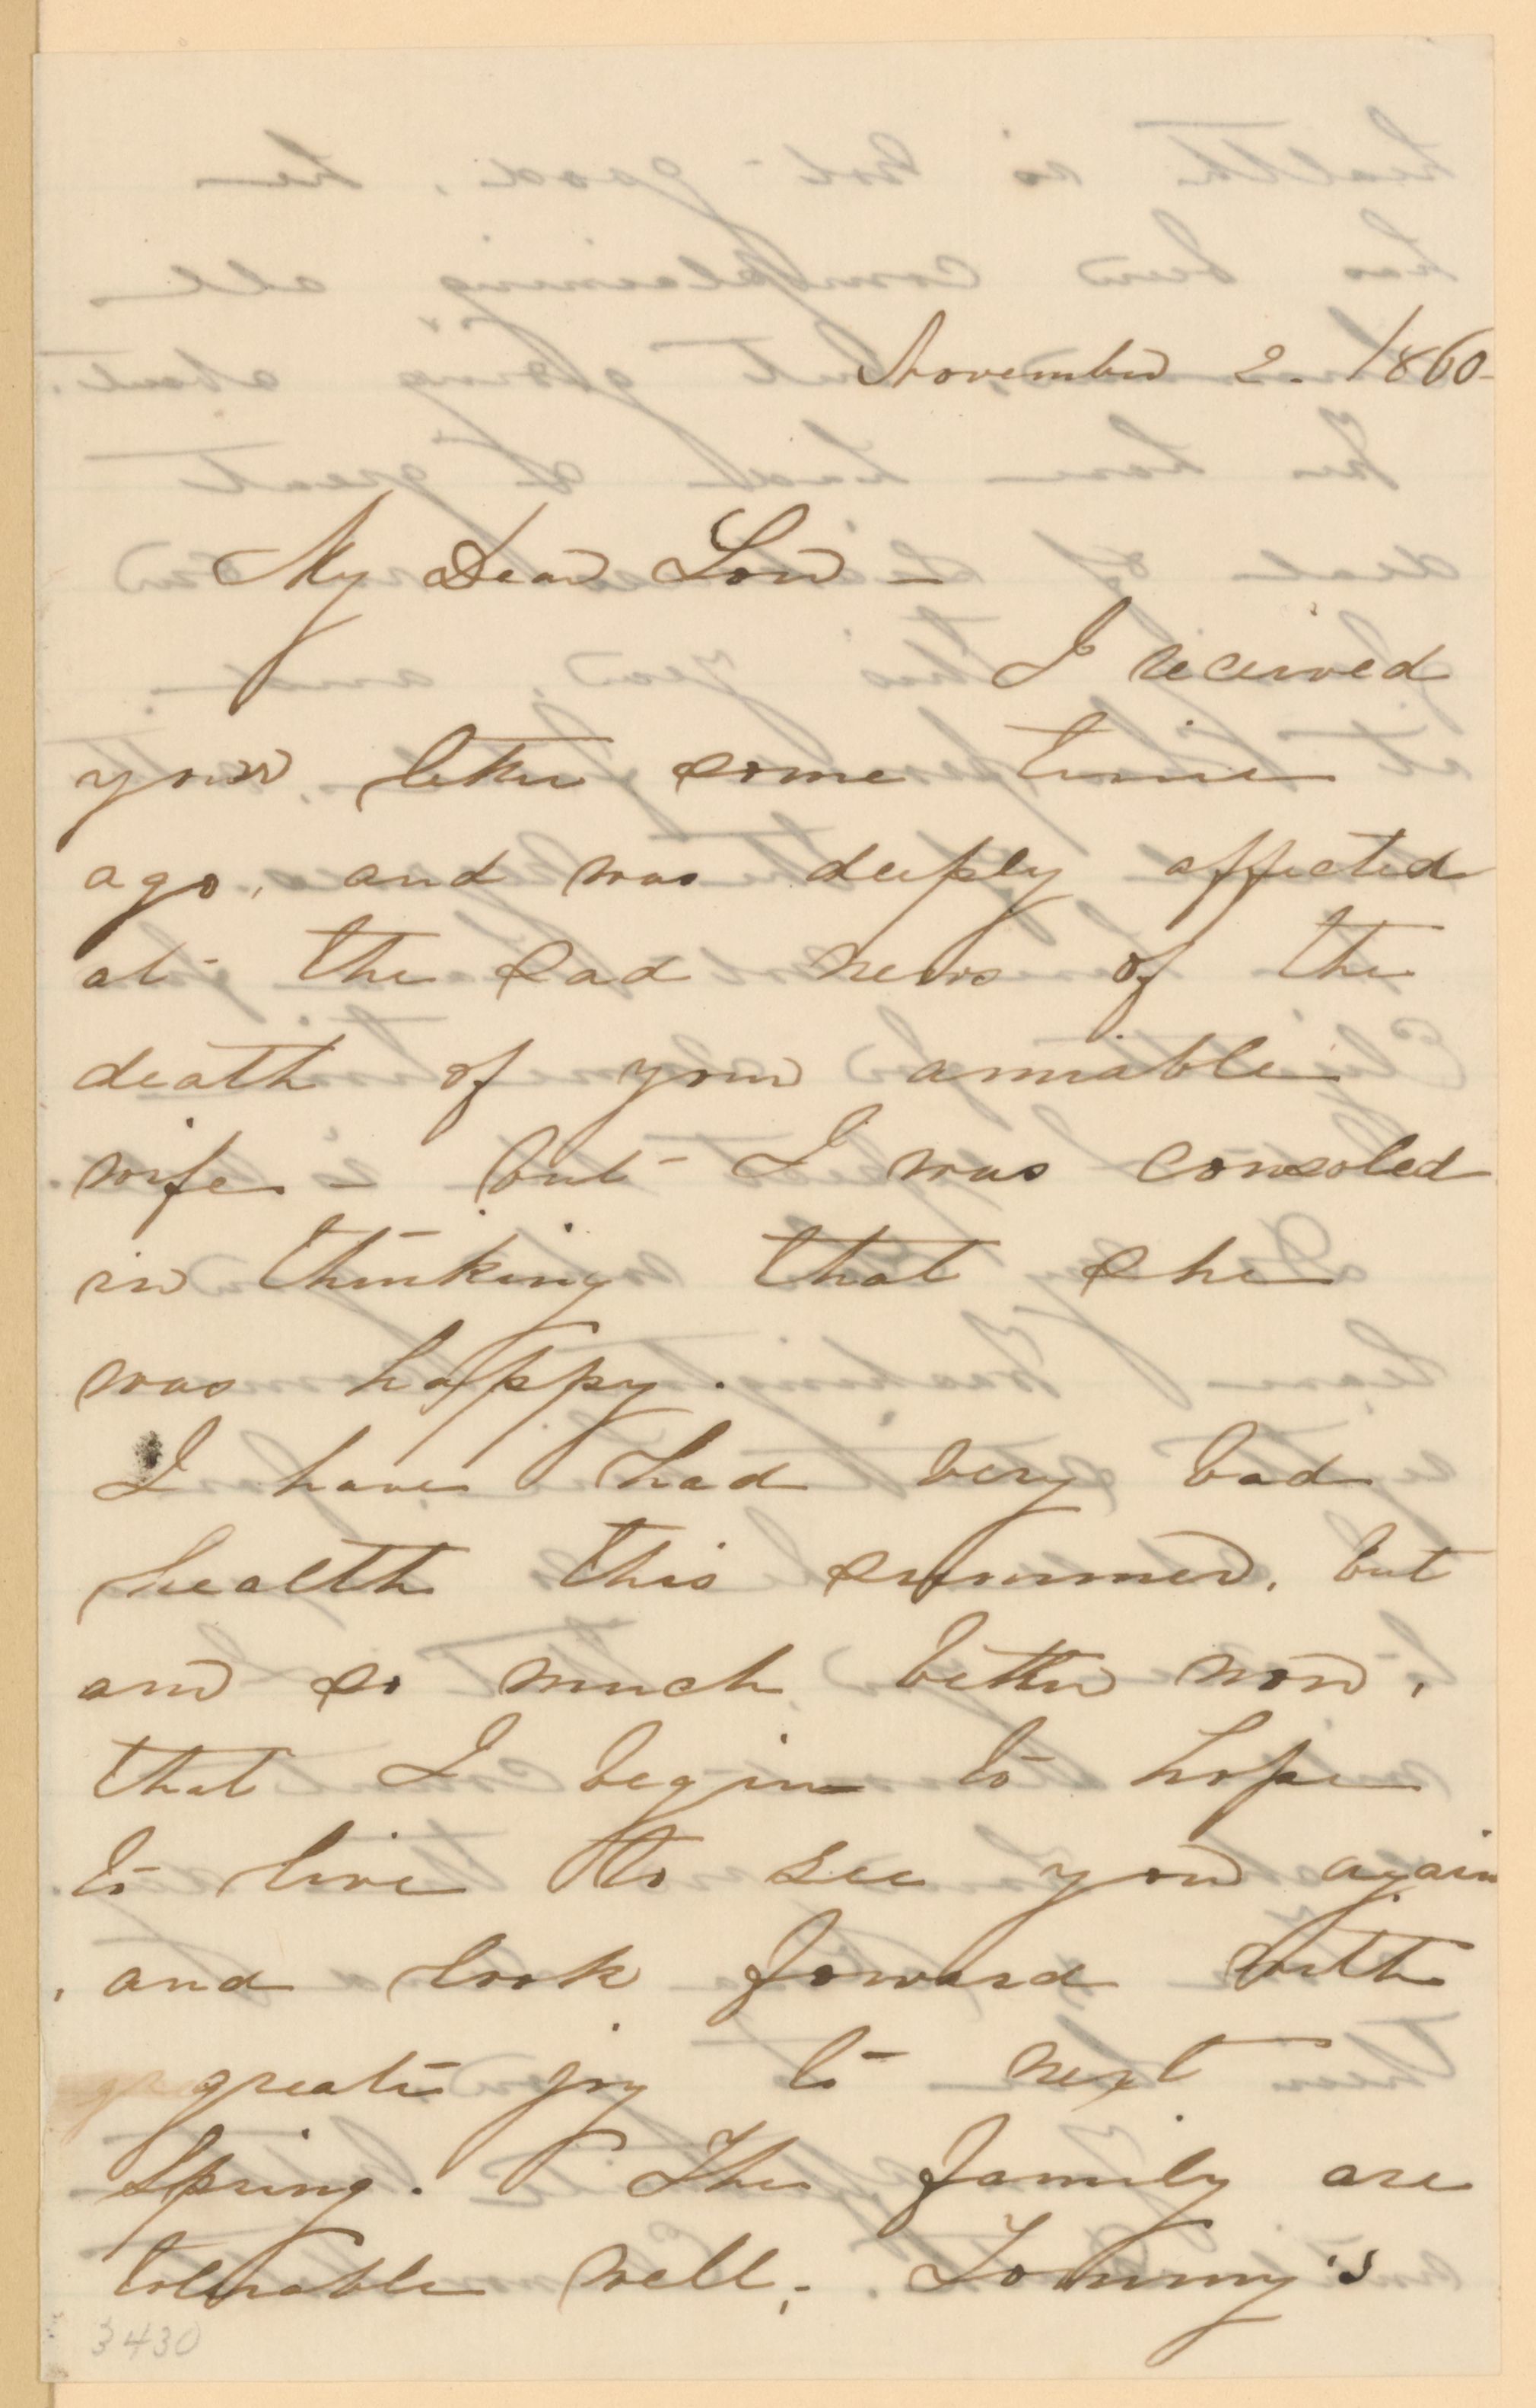 November 2. 1860-
My Dear Son -
I received
your letter some time
ago, and was deeply affected
at the sad news of the
death of your amiable
wife - but I was consoled
in thinking that she
was happy.
I have had very bad
health this summer, but
am so much better now,
that I begin to hope
to live to see you again
, and look foward with
great joy to next
Spring. The family are
tolerable well; Tommy's
3430